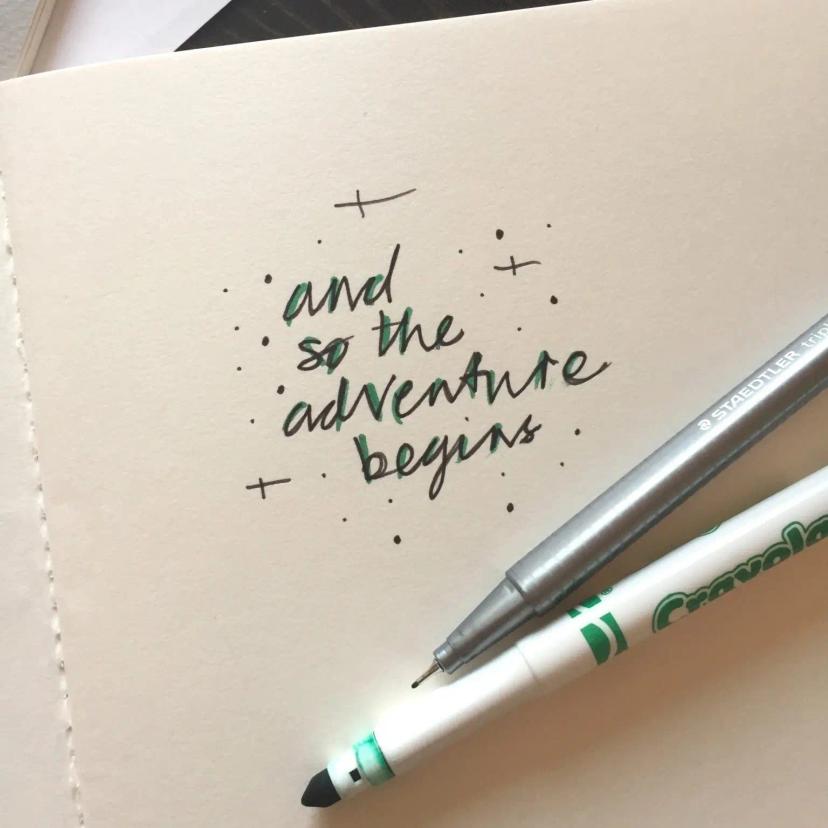 and
so the
adventure
begins
STAEDTLER trip
Crayola